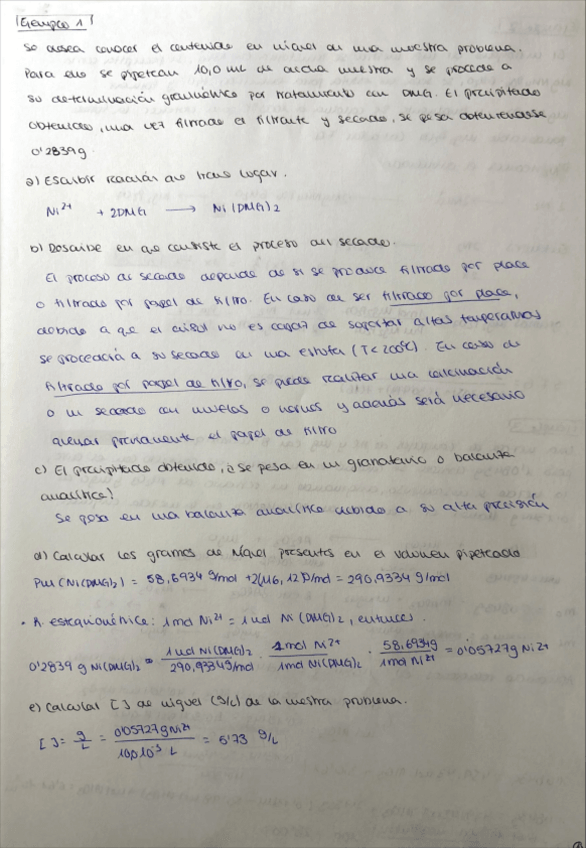 Ejemplo 1
Se desea conocer el contenido en níquel en una muestra problema.
Para ello se pipetean 10,0 mL de dicha muestra y se procede a
su determinación gravimétrica por tratamiento con DMG. El precipitado
obtenido, una vez filtrado el filtrante y secado, se pesa obteniéndose
0'2839g.
a) Escribir reacción que tiene lugar.
Ni²⁺ + 2DMG ⟶ Ni(DMG)₂
b) Describe en que consiste el proceso del secado.
El proceso de secado depende de si se produce filtrado por placa
o filtrado por papel de filtro. En caso de ser filtrado por placa,
debido a que el crisol no es capaz de soportar altas temperaturas
se procederá a su secado en una estufa (T<200ºC). En caso de
filtrado por papel de filtro, se puede realizar una calcinación
o un secado con muflas o hornos y además será necesario
quemar previamente el papel de filtro
c) El precipitado obtenido, ¿se pesa en un granatario o balanza
analítica?
Se pesa en una balanza analítica debido a su alta precisión
d) Calcular los gramos de Níquel presentes en el volumen pipeteado
PM (Ni(DMG)₂) = 58,6934 g/mol + 2(116,12) g/mol = 290,9334 g/mol
· R. estequiométrica: 1 mol Ni²⁺ = 1 mol Ni(DMG)₂, entonces:
0'2839 g Ni(DMG)₂ = 1 mol Ni(DMG)₂ / 290,9334 g/mol · 1 mol Ni²⁺ / 1 mol Ni(DMG)₂ · 58,6934g / 1 mol Ni²⁺ = 0'05727g Ni²⁺
e) Calcular [ ] de níquel (g/L) de la muestra problema.
[ ] = g/L = 0'05727g Ni²⁺ / 10·10⁻³ L = 5'73 g/L